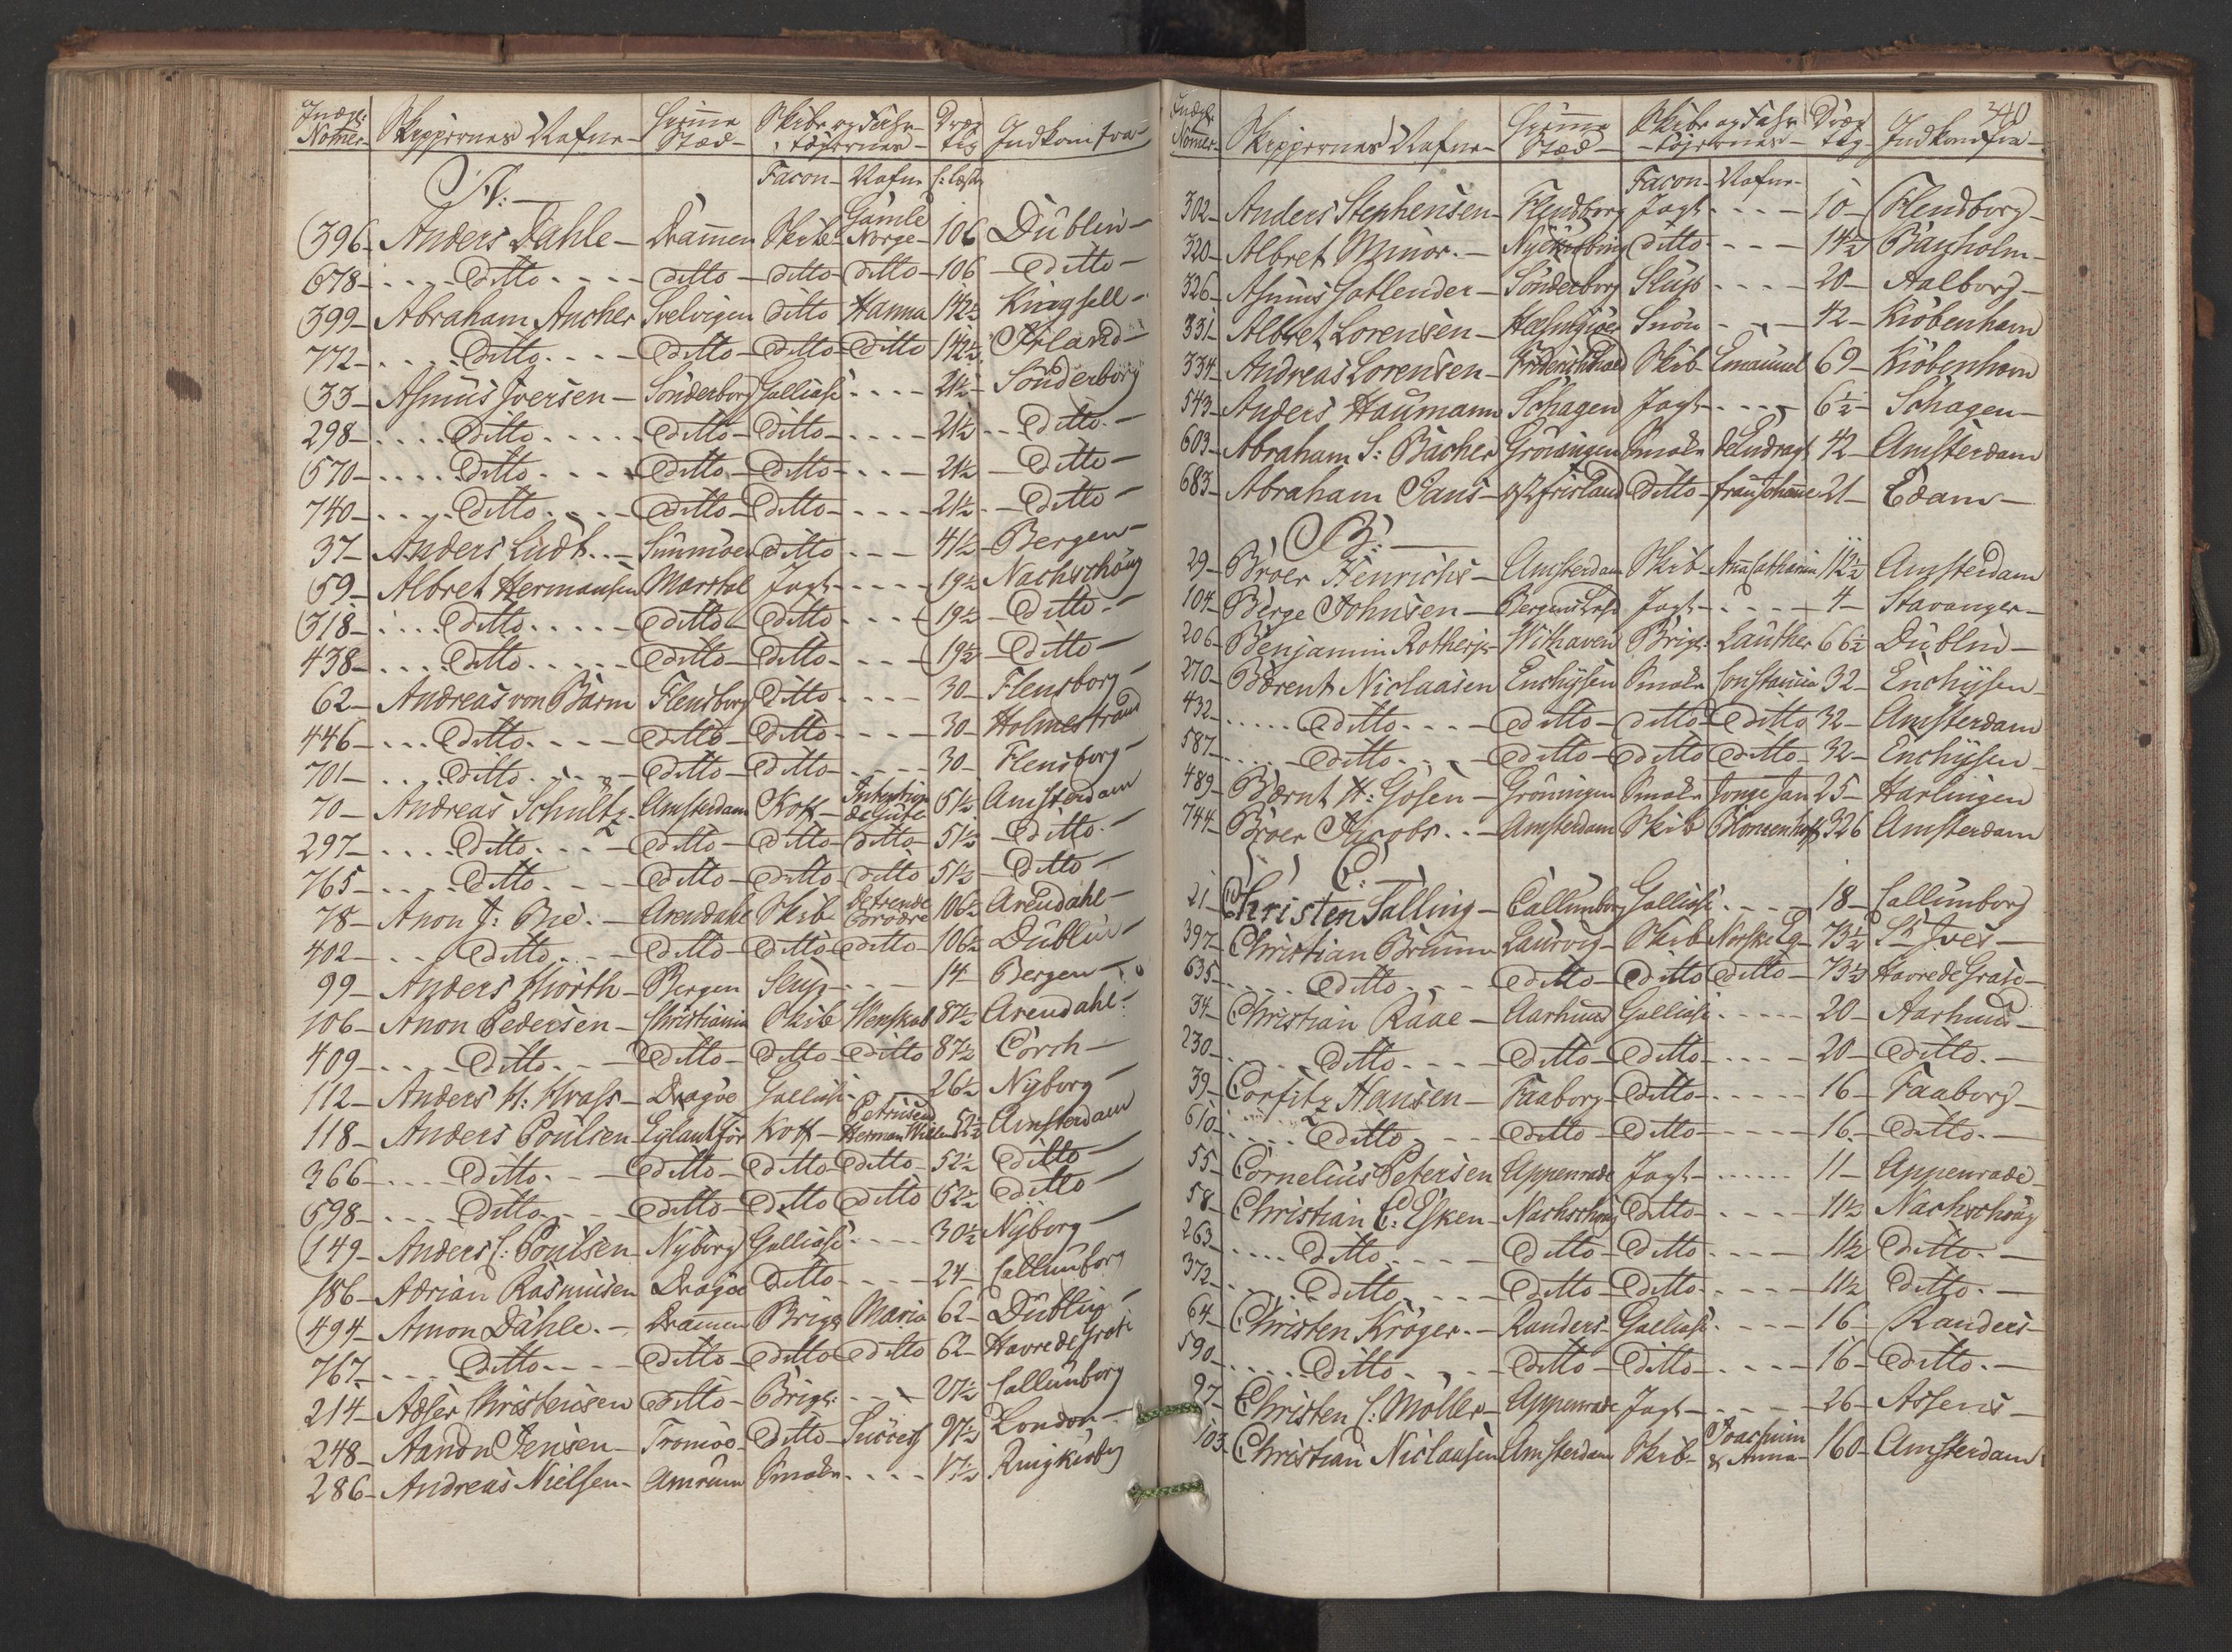 Nomer- Skippernes Nafne- Hiemme Stæd- Skibs og Fahr- tøyernes- Dræg tig Indkom fra-
A:- Facon- Nafn
396- Anders Dahle- Dramen Skib- Gamle Norge- 106 Dublin-
678- ditto ditto- ditto- ditto- 106 ditto-
399- Abraham Ancher Svelvigen ditto Hanna 142½
772- ditto ditto- ditto- ditto 142½ Irland-
33- Asmus Iversen- Sönderborg Galliase 21½ Sönderborg
298- ditto ditto- ditto- 21½ ditto-
570- ditto ditto- ditto- 21½ ditto-
740- ditto ditto- ditto- 21½ ditto-
37- Anders Ludt- ditto 41½ Bergen-
59- Albret Hermansen Marstal Jagt- 19½ Nachschöug
318- ditto ditto- ditto 19½ ditto-
438- ditto ditto- ditto- 19½ ditto-
62- Andreas von Barm Flensborg ditto 30- Flensborg-
446- ditto ditto- ditto- 30- Holmestrand
701- ditto ditto- ditto- 30- Flensborg-
70- Andreas Schultz- Amsterdam Koff- 51½ Amsterdam
297- ditto ditto- ditto- ditto- 51½ ditto-
765- ditto ditto- ditto- ditto 51½ ditto-
78- Anon J: Bie- Arendahl Skib- De trende Brödre 106½ Arendahl-
402- ditto ditto- ditto ditto- 106½ Dublin-
99- Anders Hiorth- Bergen Slup- 14- Bergen-
106- Anon Pedersen- Christiania Skib Wenskab 87½ Arendahl-
409- ditto ditto- ditto- ditto 87½ Corch-
112- Anders H: Hvass- Dragöe Galliase 26½ Nyborg-
118- Anders Poulsen Koff- Herman Willem 52½ Amsterdam
366- ditto ditto- ditto- ditto- 52½ ditto-
598- ditto ditto- ditto ditto 52½ ditto-
149- Anders C: Poulsen Nyborg Galliase 30½ Nyborg-
186- Adrian Rasmusen Dragöe ditto 24- Callunborg
494- Amon Dahle- Dramen Brigs Maria 62- Dublin-
767- ditto ditto- ditto ditto 62- Havre de Grace
214- Adser Christensen ditto- Brigs 27½ Callunborg
248- Aanon Jensen- Tromöe- ditto- Success 97½ London-
286- Andreas Nielsen- Amrum Smak- 17½ Ringkiøby
340
Nomer- Skippernes Nafne- Hiemme Stæd- Skibs og Fahr- töyernes- Dræg tig- Indkom fra-
Facon- Nafne-
302- Anders Stephensen- Flensborg Jagt- 10- Flensborg-
320- Albret Minor- Nyekiöbing ditto 14½ Banholm-
326- Asmus Gotlender- Sönderborg Slup 20- Aalborg-
331- Albret Lorensen- Helsingöer Snou 42- Kiöbenhavn
334- Andreas Lorensen- Friderichshald Skib- Emanuel 69- Kiöbenhavn
543- Anders Haumann Schagen Jagt- 6½ Schagen-
603- Abraham S: Bacher Gröningen Smak- de Endragt 42- Amsterdam
683- Abraham Jans- Ostfrisland ditto- frau Johanne 21- Edam-
B:-
29- Broer Henrichs- Amsterdam Skib Ana Catharina 112½ Amsterdam
104- Berge Johnsen- Jagt- 4- Stavanger-
206- Benjamin Brigs: 66½ Dublin-
270- Barent Niclaasen Enchysen Smak- Constantia 32- Enchysen-
432- ditto ditto- ditto- ditto 32- Amsterdam
587- ditto ditto- ditto ditto- 32- Enchysen-
489- Bernt H: Gosen- Gröningen Smak- Jonge Jan 25- Harlingen
744- Broer Jacobs- Amsterdam Skib 326 Amsterdam
C:-
21- Christen Salling- Callunborg Galliase 18- Callunborg
397- Christian Brunn- Laurvig- Skib Norske Eg- 73½ St Ives-
635- ditto ditto- ditto ditto- 73½ Havre de Grace-
34- Christian Raae- Aarhuus Galliase 20- Aarhuus-
230- ditto ditto- ditto- 20- ditto-
39- Corfitz Hansen- Faaborg- ditto 16- Faaborg-
610- ditto ditto ditto- 16- ditto-
55- Cornelius Petersen Appenrade Jagt- 11- Appenrade-
58- Christian C: Esken- Nachschöug ditto- 11½ Nachschöug
263- ditto ditto- ditto 11½ ditto-
372- ditto ditto- ditto- 11½ ditto-
64- Christen Kröger- Randers- Galliase 16- Randers-
590- ditto ditto- ditto- 16- ditto-
97- Christen C: Möller- Appenrade Jagt- 26- Assens-
103- Christian Niclausen Amsterdam Skib- Joachim & Anna- 160- Amsterdam